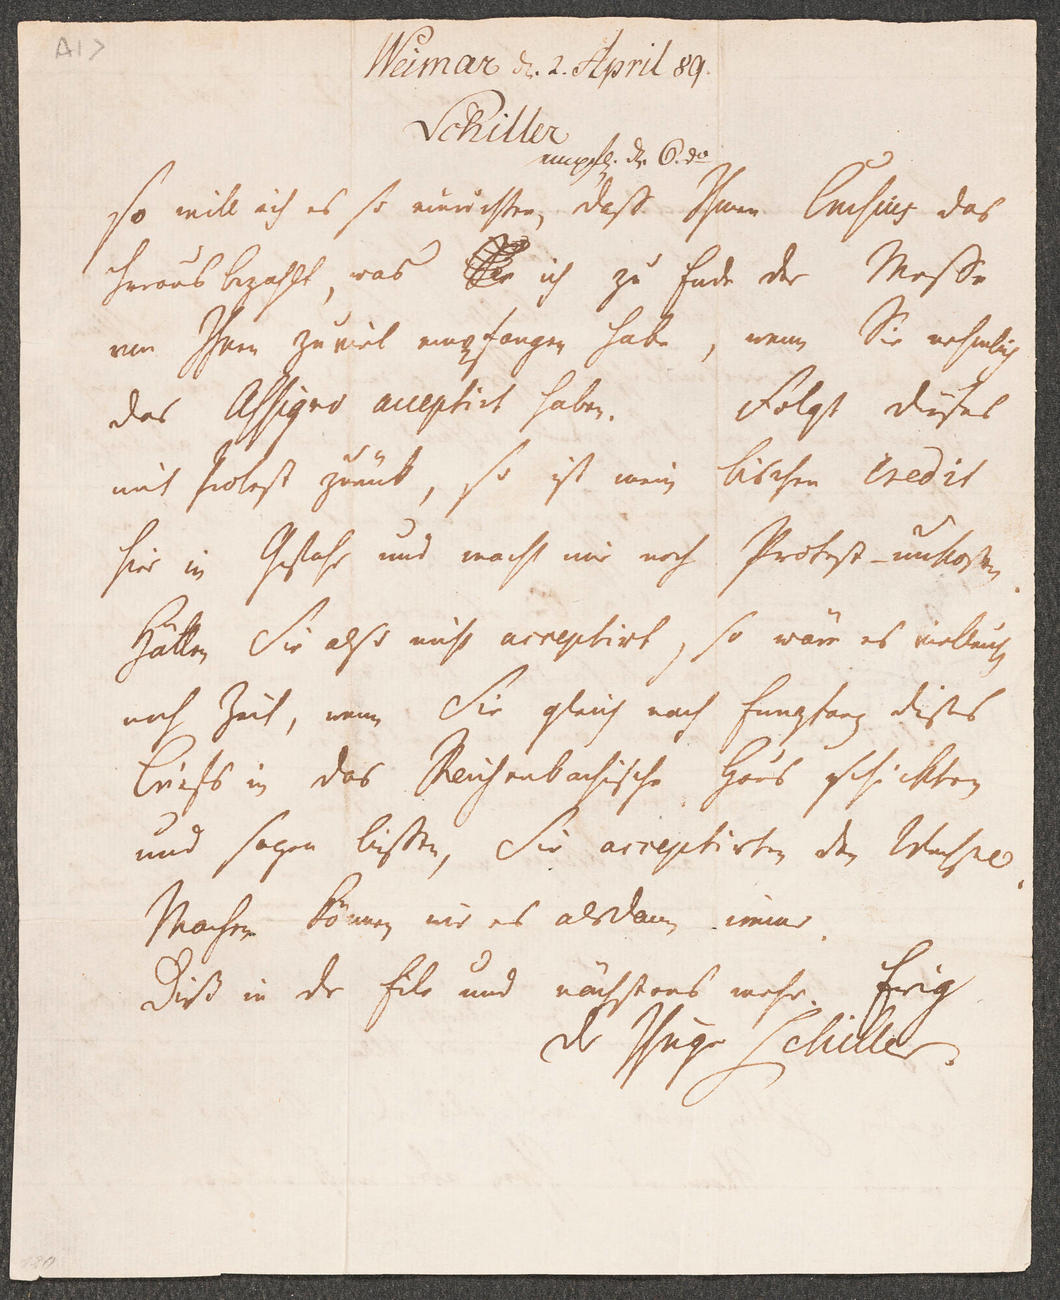 A1>
Weimar dn. 2. April 89.
Schiller
empf. dn 6. do
so will ich es so einrichten, daß Ihnen Crusius das
herausbezahlt, was ich zu Ende der Messe
von Ihnen zuviel empfangen habe, wenn Sie nehmlich
das Assigno acceptirt haben. Folgt dieses
mit Protest zurück, so ist mein bischen Credit
hier in Gefahr und macht mir noch Protest-unkosten.
Hätten Sie also nicht acceptirt, so wäre es vielleicht
noch Zeit, wenn Sie gleich nach Empfang dieses
Briefs in das Reichenbachische Haus schickten
und sagen liessen, Sie acceptirten den Wechsel.
Machen können wir es alsdann immer.
Diß in der Eile und nächstens mehr. Ewig
der Ihrige Schiller.